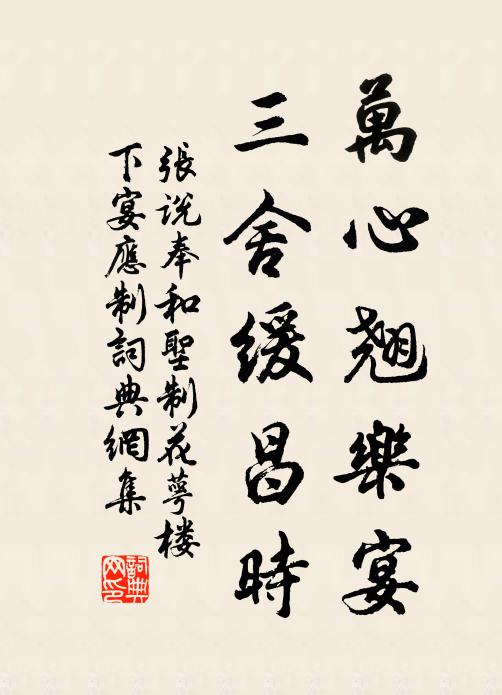 萬心翹樂宴
三舍緩昌時
張说奉和聖制花萼楼
下宴應制詞典網集
詞典网印